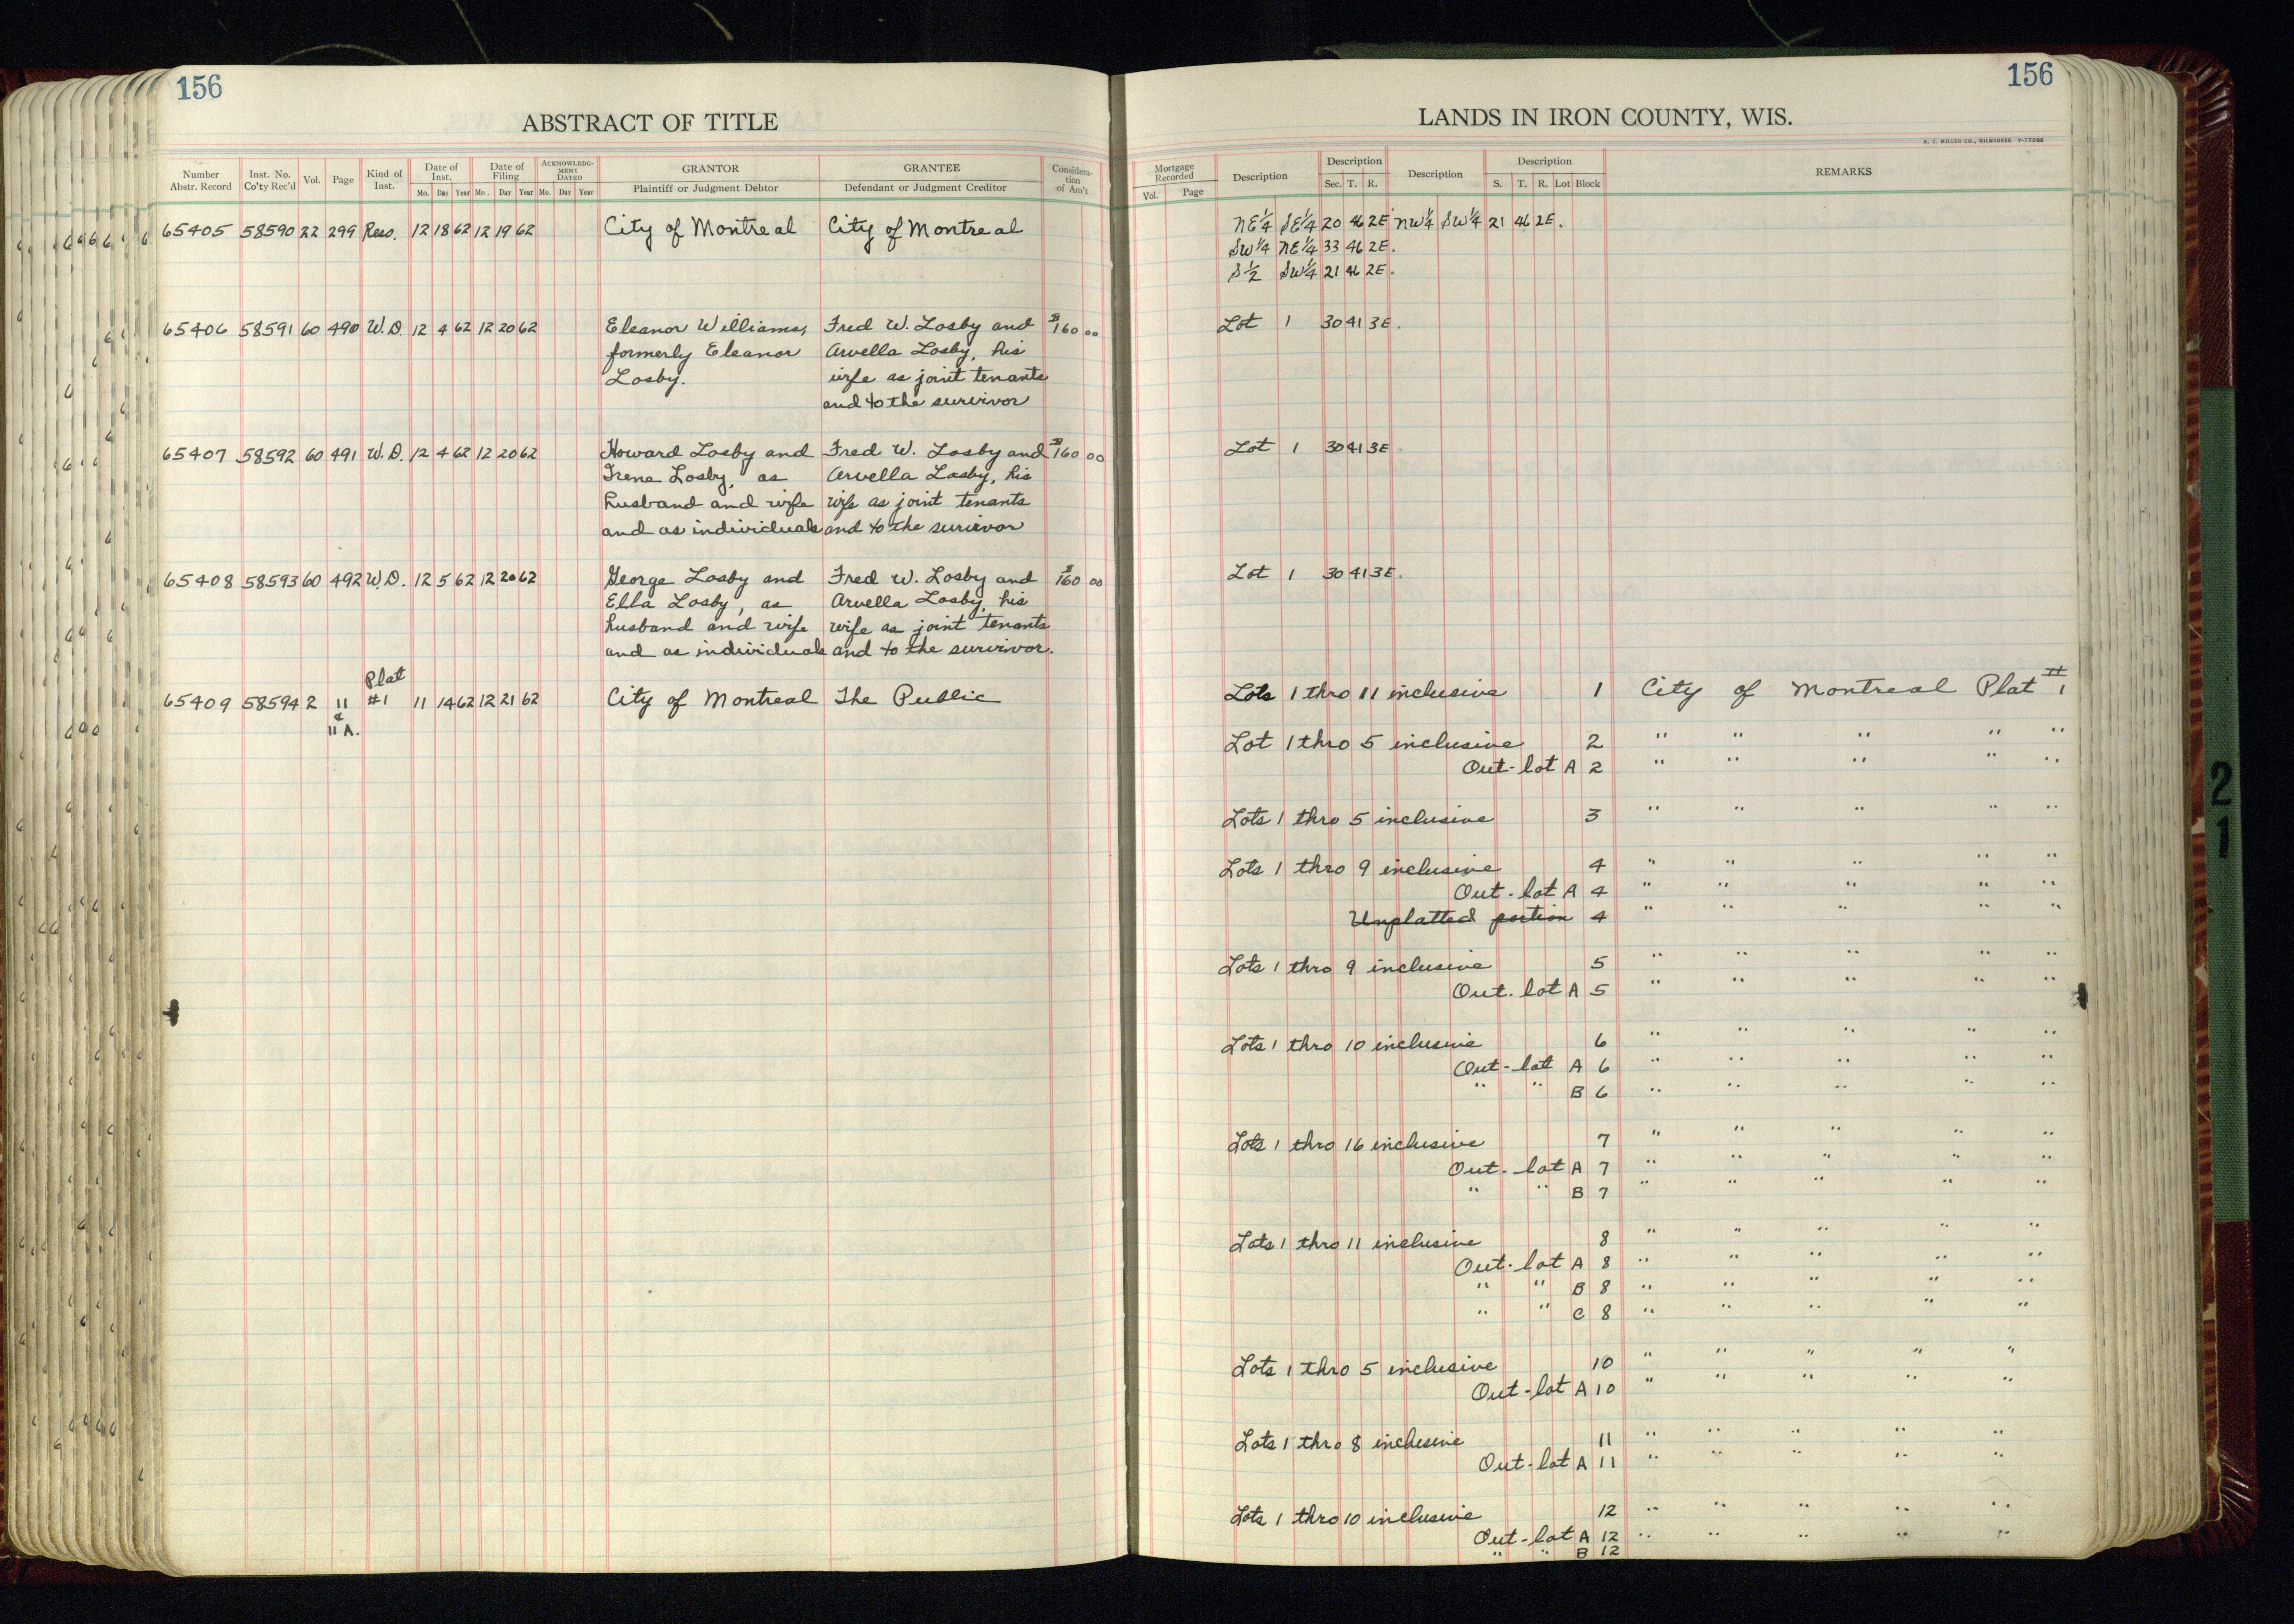 156
ABSTRACT OF TITLE
Number Abstr. Record Inst. No. Co'ty Rec'd Vol. Page Kind of Inst. Date of Inst. Mo. Day Year Date of Filing Mo. Day Year ACKNOWLEDGMENT DATED Mo. Day Year GRANTOR Plaintiff or Judgment Debtor GRANTEE Defendant or Judgment Creditor Consideration of Am't
65405 58590 22 299 Reso. 12 18 62 12 19 62 City of Montreal City of Montreal
65406 58591 60 490 W.D. 12 4 62 12 20 62 Eleanor Williams, Fred W. Losby and $160 00
formerly Eleanor Arvella Losby, his
Losby. wife as joint tenants
and to the survivor
65407 58592 60 491 W.D. 12 4 62 12 20 62 Howard Losby and Fred W. Losby and $160 00
Irene Losby, as Arvella Losby, his
husband and wife wife as joint tenants
and as individuals and to the survivor
65408 58593 60 492 W.D. 12 5 62 12 20 62 George Losby and Fred W. Losby and $160 00
Ella Losby, as Arvella Losby, his
husband and wife wife as joint tenants
and as individuals and to the survivor.
Plat
65409 58594 2 11 #1 11 14 62 12 21 62 City of Montreal The Public
&
11 A.
156
LANDS IN IRON COUNTY, WIS.
H. C. MILLER CO., MILWAUKEE Y-77008
Mortgage Recorded Vol. Page Description Description Sec. T. R. Description Description S. T. R. Lot Block REMARKS
NE¼ SE¼ 20 46 2E NW¼ SW¼ 21 46 2E.
SW¼ NE¼ 33 46 2E.
S½ SW¼ 21 46 2E.
Lot 1 30 41 3E.
Lot 1 30 41 3E.
Lot 1 30 41 3E.
Lots 1 thro 11 inclusive 1 City of Montreal Plat #1
Lot 1 thro 5 inclusive 2 " " " " "
Out-lot A 2 " " " " "
Lots 1 thro 5 inclusive 3 " " " " "
Lots 1 thro 9 inclusive 4 " " " " "
Out-lot A 4 " " " " "
Unplatted portion 4 " " " " "
Lots 1 thro 9 inclusive 5 " " " " "
Out-lot A 5 " " " " "
Lots 1 thro 10 inclusive 6 " " " " "
Out-lot A 6 " " " " "
" " B 6 " " " " "
Lots 1 thro 16 inclusive 7 " " " " "
Out-lot A 7 " " " " "
" " B 7 " " " " "
Lots 1 thro 11 inclusive 8 " " " " "
Out-lot A 8 " " " " "
" " B 8 " " " " "
" " C 8 " " " " "
Lots 1 thro 5 inclusive 10 " " " " "
Out-lot A 10 " " " " "
Lots 1 thro 8 inclusive 11 " " " " "
Out-lot A 11 " " " " "
Lots 1 thro 10 inclusive 12 " " " " "
Out-lot A 12 " " " " "
" " B 12
21